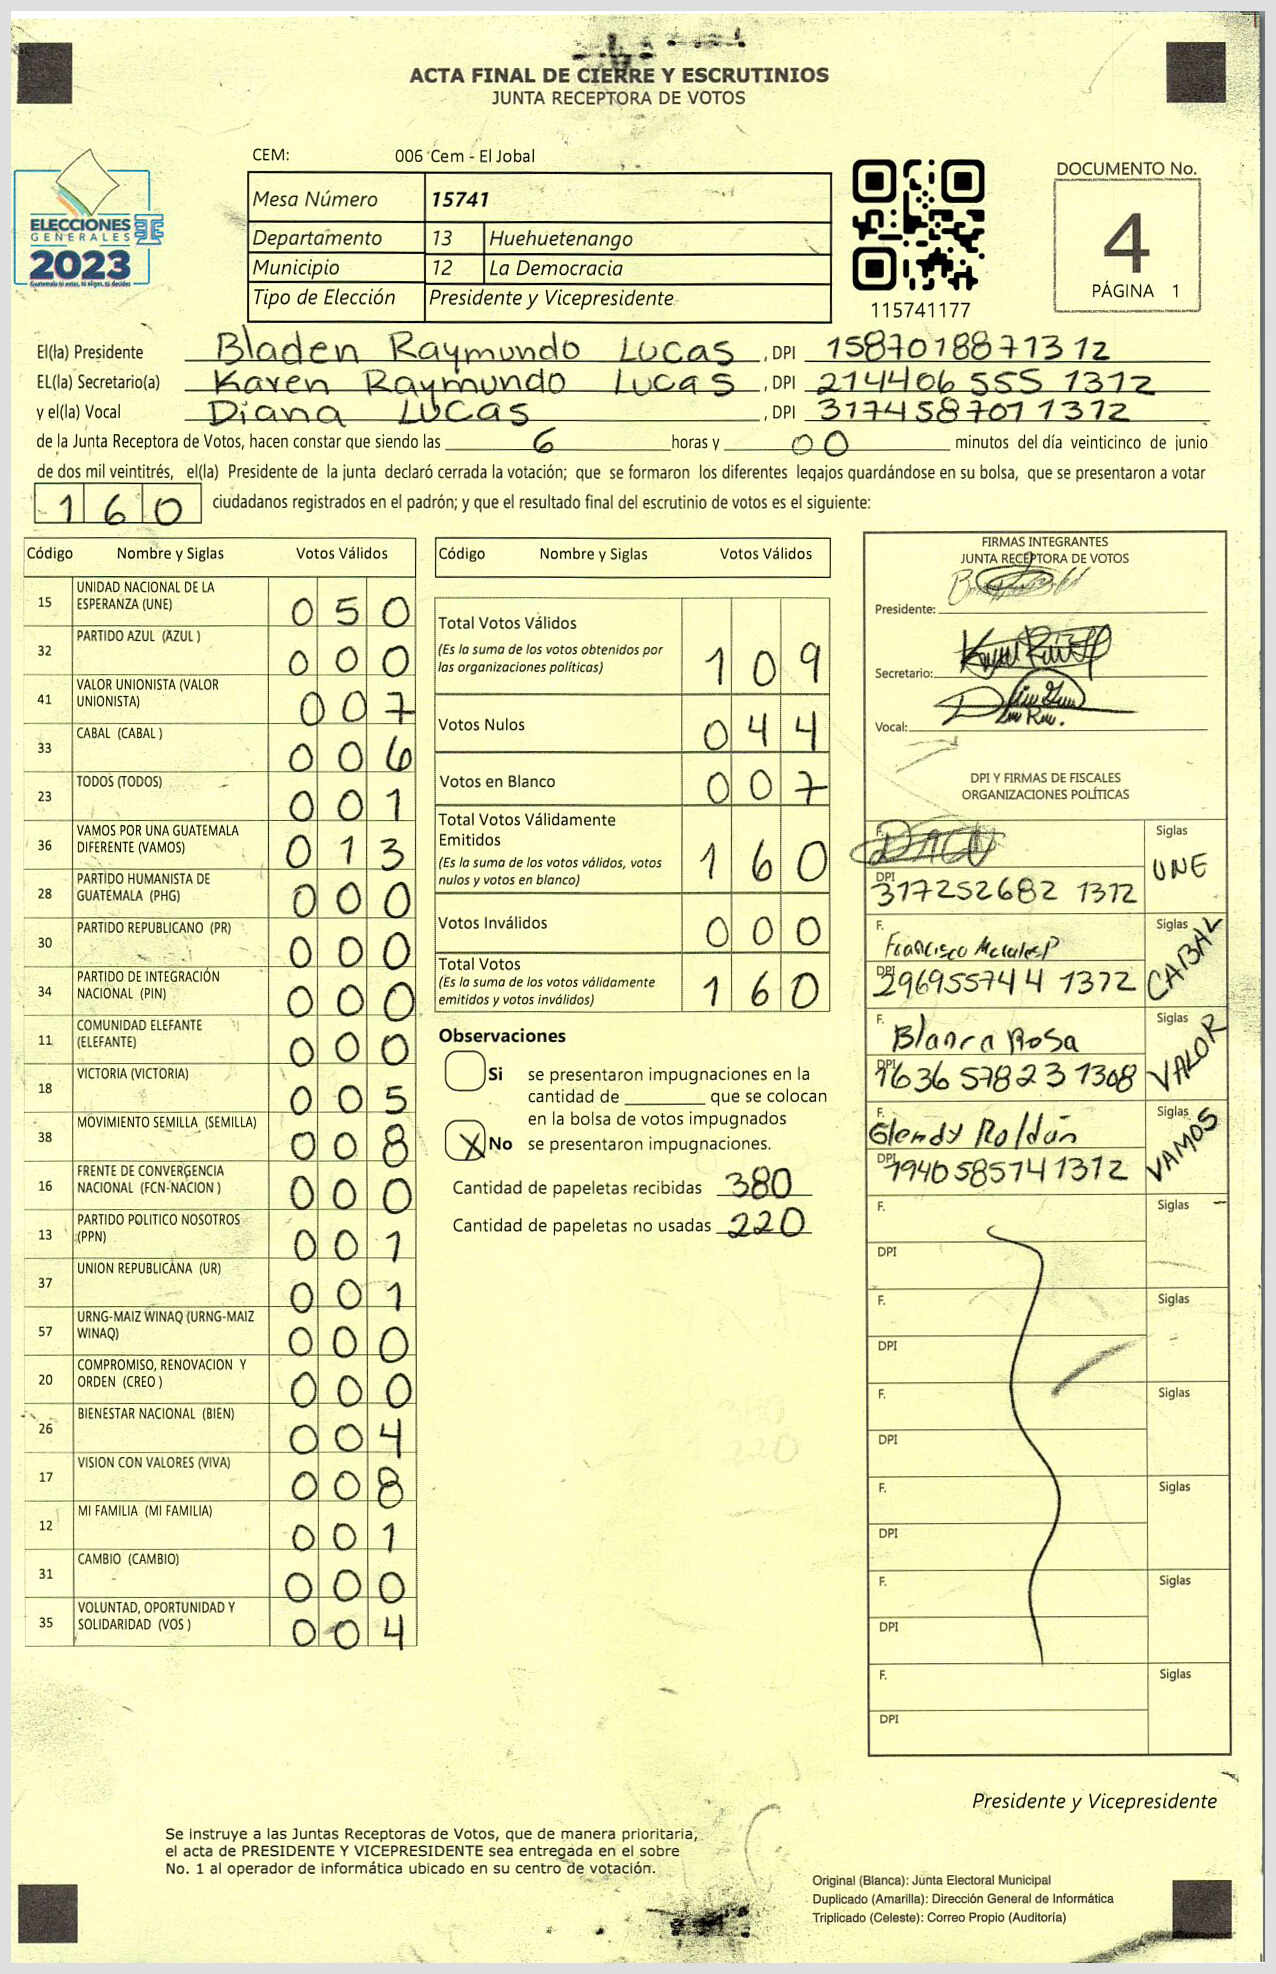 ACTA FINAL DE CIERRE Y ESCRUTINIOS
JUNTA RECEPTORA DE VOTOS
CEM: 006 Cem - El Jobal
ELECCIONES
GENERALES
2023
Mesa Número 15741
Departamento 13 Huehuetenango
Municipio 12 La Democracia
Tipo de Elección Presidente y Vicepresidente
115741177
DOCUMENTO No.
4
PÁGINA 1
El(la) Presidente Bladen Raymundo Lucas, DPI 1587018871312
EL(la) Secretario(a) Karen Raymundo Lucas, DPI 214406 555 1312
y el(la) Vocal Diana Lucas, DPI 3174587011312
de la Junta Receptora de Votos, hacen constar que siendo las 6 horas y 00 minutos del día veinticinco de junio
de dos mil veintitrés, el(la) Presidente de la junta declaró cerrada la votación; que se formaron los diferentes legajos guardándose en su bolsa, que se presentaron a votar
160 ciudadanos registrados en el padrón; y que el resultado final del escrutinio de votos es el siguiente:
Código Nombre y Siglas Votos Válidos
15 UNIDAD NACIONAL DE LA ESPERANZA (UNE) 050
32 PARTIDO AZUL (AZUL ) 000
41 VALOR UNIONISTA (VALOR UNIONISTA) 007
33 CABAL (CABAL ) 006
23 TODOS (TODOS) 001
36 VAMOS POR UNA GUATEMALA DIFERENTE (VAMOS) 013
28 PARTIDO HUMANISTA DE GUATEMALA (PHG) 000
30 PARTIDO REPUBLICANO (PR) 000
34 PARTIDO DE INTEGRACIÓN NACIONAL (PIN) 000
11 COMUNIDAD ELEFANTE (ELEFANTE) 000
18 VICTORIA (VICTORIA) 005
38 MOVIMIENTO SEMILLA (SEMILLA) 008
16 FRENTE DE CONVERGENCIA NACIONAL (FCN-NACION ) 000
13 PARTIDO POLITICO NOSOTROS (PPN) 001
37 UNION REPUBLICANA (UR) 001
57 URNG-MAIZ WINAQ (URNG-MAIZ WINAQ) 000
20 COMPROMISO, RENOVACION Y ORDEN (CREO ) 000
26 BIENESTAR NACIONAL (BIEN) 004
17 VISION CON VALORES (VIVA) 008
12 MI FAMILIA (MI FAMILIA) 001
31 CAMBIO (CAMBIO) 000
35 VOLUNTAD, OPORTUNIDAD Y SOLIDARIDAD (VOS ) 004
Código Nombre y Siglas Votos Válidos
Total Votos Válidos 109
(Es la suma de los votos obtenidos por
las organizaciones políticas)
Votos Nulos 044
Votos en Blanco 007
Total Votos Válidamente
Emitidos 160
(Es la suma de los votos válidos, votos
nulos y votos en blanco)
Votos Inválidos 000
Total Votos 160
(Es la suma de los votos válidamente
emitidos y votos inválidos)
Observaciones
Si se presentaron impugnaciones en la
cantidad de ________ que se colocan
en la bolsa de votos impugnados
X No se presentaron impugnaciones.
Cantidad de papeletas recibidas 380
Cantidad de papeletas no usadas 220
FIRMAS INTEGRANTES
JUNTA RECEPTORA DE VOTOS
Presidente:
Secretario:
Vocal:
DPI Y FIRMAS DE FISCALES
ORGANIZACIONES POLÍTICAS
F. Siglas UNE
DPI 317252682 1312
F. Francisco Morales P Siglas CABAL
DPI 296955744 1312
F. Blanca Rosa Siglas VALOR
DPI 1636578231308
F. Glendy Roldán Siglas VAMOS
DPI 1940585741312
F. Siglas
DPI
F. Siglas
DPI
F. Siglas
DPI
F. Siglas
DPI
F. Siglas
DPI
F. Siglas
DPI
Presidente y Vicepresidente
Se instruye a las Juntas Receptoras de Votos, que de manera prioritaria,
el acta de PRESIDENTE Y VICEPRESIDENTE sea entregada en el sobre
No. 1 al operador de informática ubicado en su centro de votación.
Original (Blanca): Junta Electoral Municipal
Duplicado (Amarilla): Dirección General de Informática
Triplicado (Celeste): Correo Propio (Auditoría)